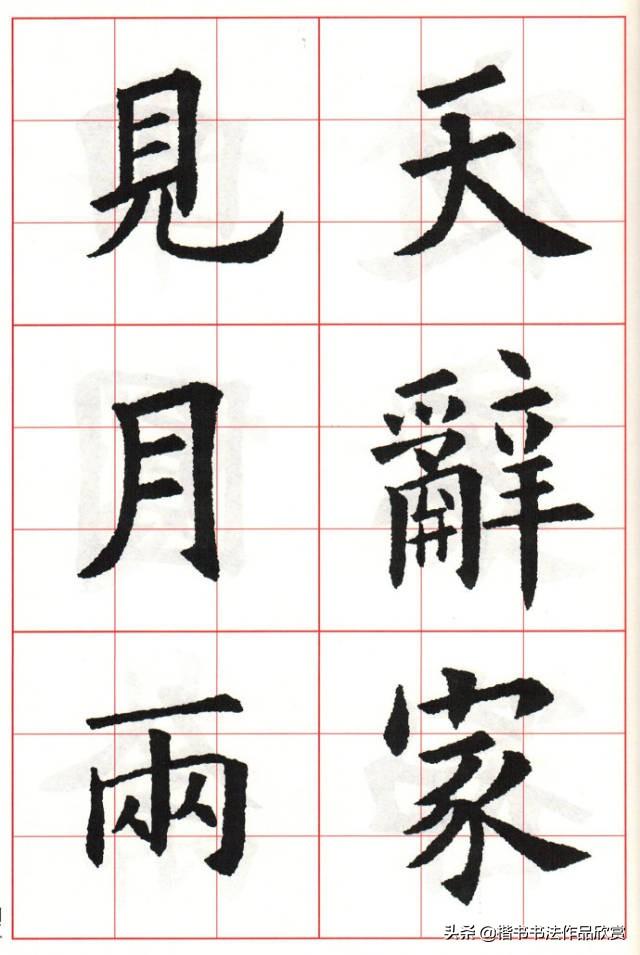 天辭家
見月兩
头条 @楷书书法作品欣赏